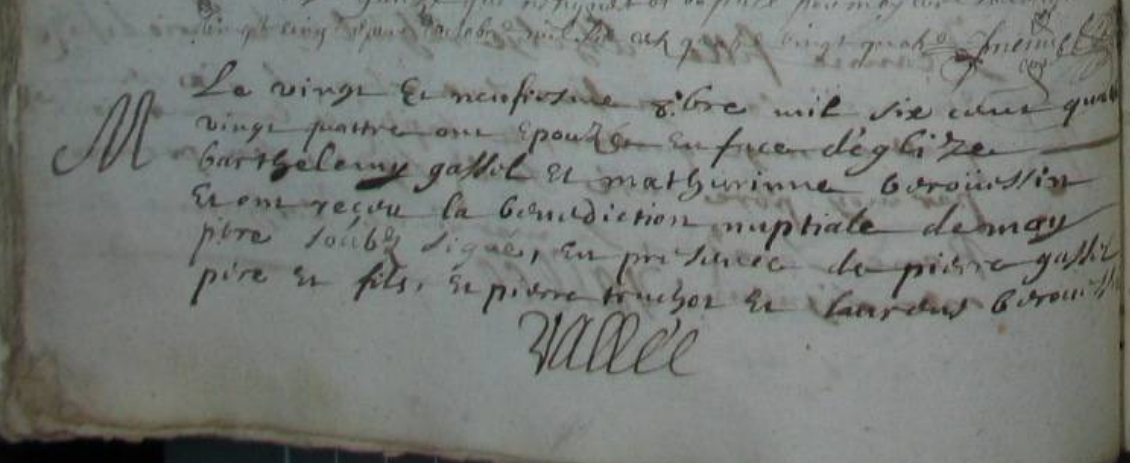 vingt cinq
M
Le vingt Et neufiesme 8.bre mil six cent quatr
vingt quattre ont Epouzé En face déglize
barthelemy gassil Et mathurinne beroüessin
Et ont reçeu la benediction nuptiale de moy
ptre soubz signé, En presence de pierre gassil
pere Et fils, Et pierre truchot Et laurens beroue
Vallée